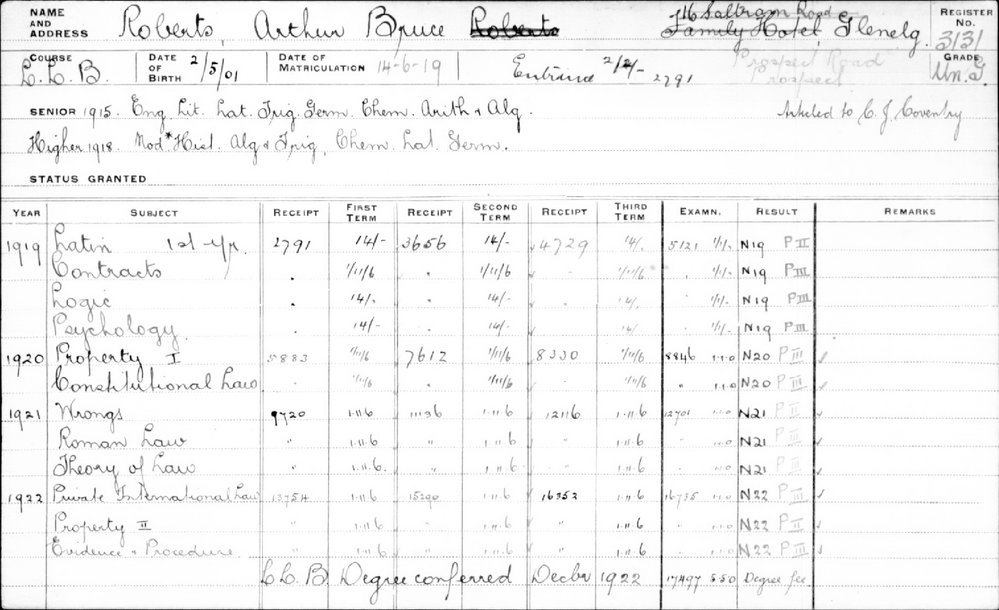 NAME AND ADDRESS Roberts, Arthur Bruce Roberts 16 Saltram Road Family Hotel, Glenelg. REGISTER No. 3131
Prospect Road Prospect
COURSE L.L.B. DATE OF BIRTH 2/5/01 DATE OF MATRICULATION 14-6-19 Entrance 2/2/- 2791 GRADE Un. G.
SENIOR 1915. Eng. Lit. Lat. Trig. Germ. Chem. Arith & Alg. Articled to C. J. Coventry
Higher 1918. Mod* Hist. Alg & Trig, Chem. Lat. Germ.
STATUS GRANTED
YEAR SUBJECT RECEIPT FIRST TERM RECEIPT SECOND TERM RECEIPT THIRD TERM EXAMN. RESULT REMARKS
1919 Latin 1st yr. 2791 14/- 3656 14/- 4729 14/- 5121 1/1/- N19 P II
Contracts " 1/11/6 " 1/11/6 " 1/11/6 " 1/1/- N19 P III
Logic " 14/- " 14/- " 14/- " 1/1/- N19 P III
Psychology " 14/- " 14/- " 14/- " 1/1/- N19 P III
1920 Property I 5883 1/11/6 7612 1/11/6 8330 1/11/6 8846 1.1.0 N20 P III ✓
Constitutional Law " 1/11/6 " 1/11/6 " 1/11/6 " 1.1.0 N20 P III ✓
1921 Wrongs 9720 1.11.6 11136 1.11.6 12116 1.11.6 12701 1.1.0 N21 P II ✓
Roman Law " 1.11.6 " 1.11.6 " 1.11.6 " 1.1.0 N21 P II ✓
Theory of Law " 1.11.6. " 1.11.6 " 1.11.6 " 1.1.0 N21 P II ✓
1922 Private International Law 13754 1.11.6 15290 1.11.6 16352 1.11.6 16735 1.1.0 N22 P III ✓
Property II " 1.11.6 " 1.11.6 " 1.11.6 " 1.1.0 N22 P II ✓
Evidence & Procedure " 1.11.6 " 1.11.6 " 1.11.6 " 1.1.0 N22 P III ✓
L.L.B. Degree conferred Decbr 1922 17497 5.5.0 Degree fee